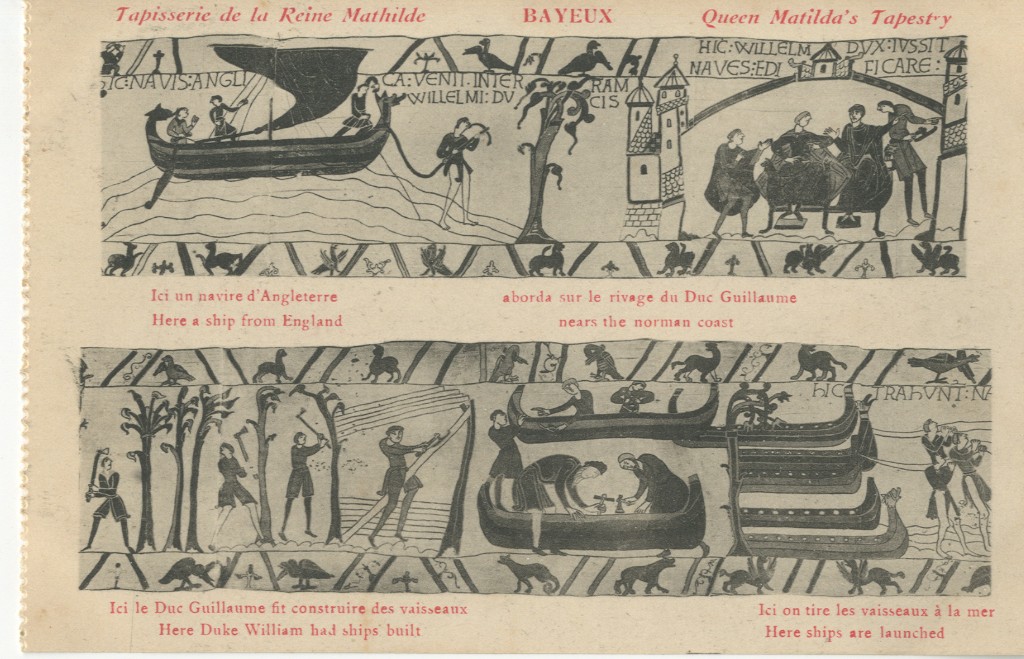 Tapisserie de la Reine Mathilde BAYEUX Queen Matilda's Tapestry
IC: NAVIS: ANGLI CA: VENIT: INTER RAM
WILLELMI: DV CIS
HIC: WILLELM DVX: IVSSIT
NAVES: EDI FICARE:
Ici un navire d'Angleterre aborda sur le rivage du Duc Guillaume
Here a ship from England nears the norman coast
HIC TRAHVNT: NA
Ici le Duc Guillaume fit construire des vaisseaux Ici on tire les vaisseaux à la mer
Here Duke William had ships built Here ships are launched